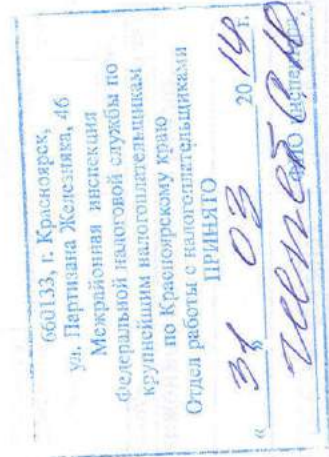 660133, г. Красноярск,
ул. Партизана Железняка, 46
Межрайонная инспекция
Федеральной налоговой службы по
крупнейшим налогоплательщикам
по Красноярскому краю
Отдел работы с налогоплательщиками
ПРИНЯТО
« 31 » 03 20 14 г.
ФИО инспектора